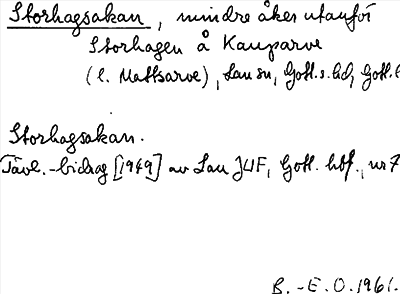 Storhagsakan, mindre åker utanför
Storhagen å Kauparve
(l. Mattsarve), Lau sn, Gotl. s. hd, Gotl. l
Storhagsakan.
Tävl.-bidrag [1949] av Lau JUF, Gotl. hbf., nr 7
B.-E.O. 1961.